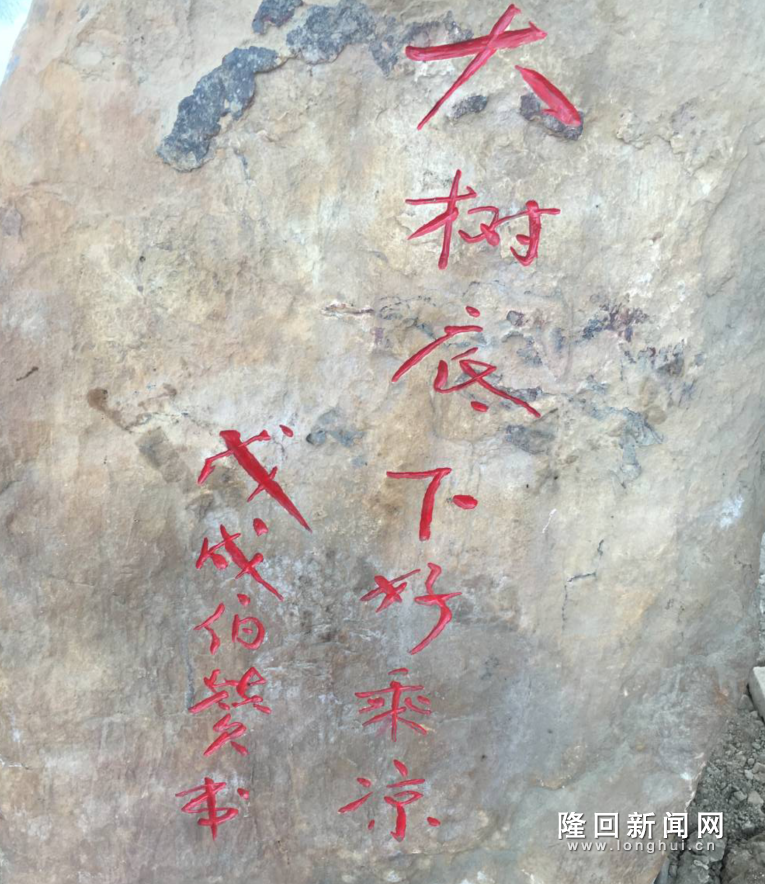 大树底下好乘凉
戊戌伯赞书
隆回新闻网
www.longhui.cn